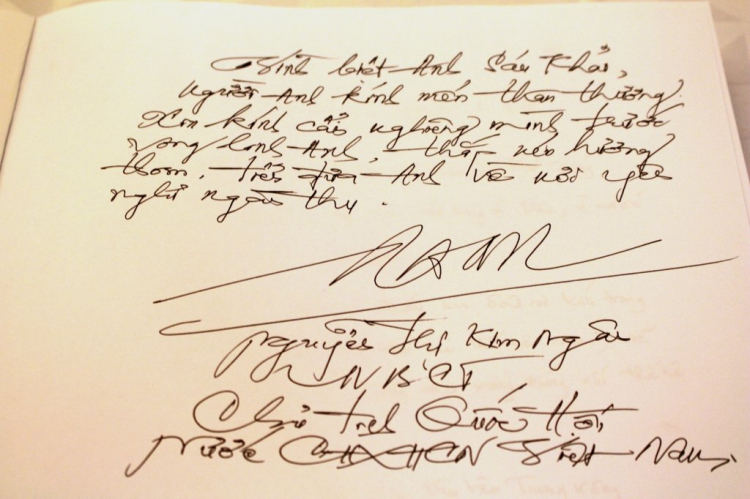 Vĩnh biệt Anh Sáu Khải,
người Anh kính mến thân thương.
Xin kính cẩn nghiêng mình trước
vong linh Anh, thắp nén hương
thơm, tiễn đưa Anh về nơi yên
nghỉ ngàn thu.
Ngân
Nguyễn Thị Kim Ngân
UVBCT,
Chủ tịch Quốc Hội
Nước CHXHCN Việt Nam